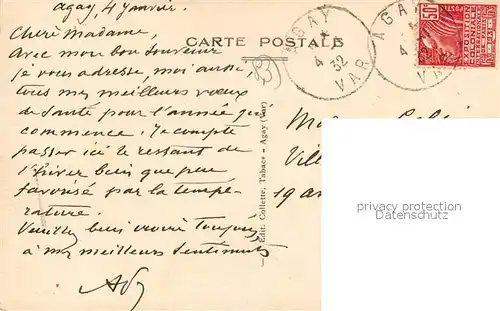 Agay, 4 Janvier.
Chère Madame,
Avec mon bon souvenir
je vous adresse, moi aussi,
tous mes meilleurs vœux
de santé pour l'année qui
commence. Je compte
passer ici le restant de
l'hiver bien que peu
favorisé par la tempé-
rature.
Veuillez bien croire toujours
à mes meilleurs sentiments
CARTE POSTALE
Edit. Collette, Tabacs - Agay (Var)
AGAY
4
32
VAR
AGAY
4
VAR
50c
POSTES
EXPOSITION
COLONIALE
INTERNATIONALE
PARIS
Vill
19 a
privacy protection
Datenschutz